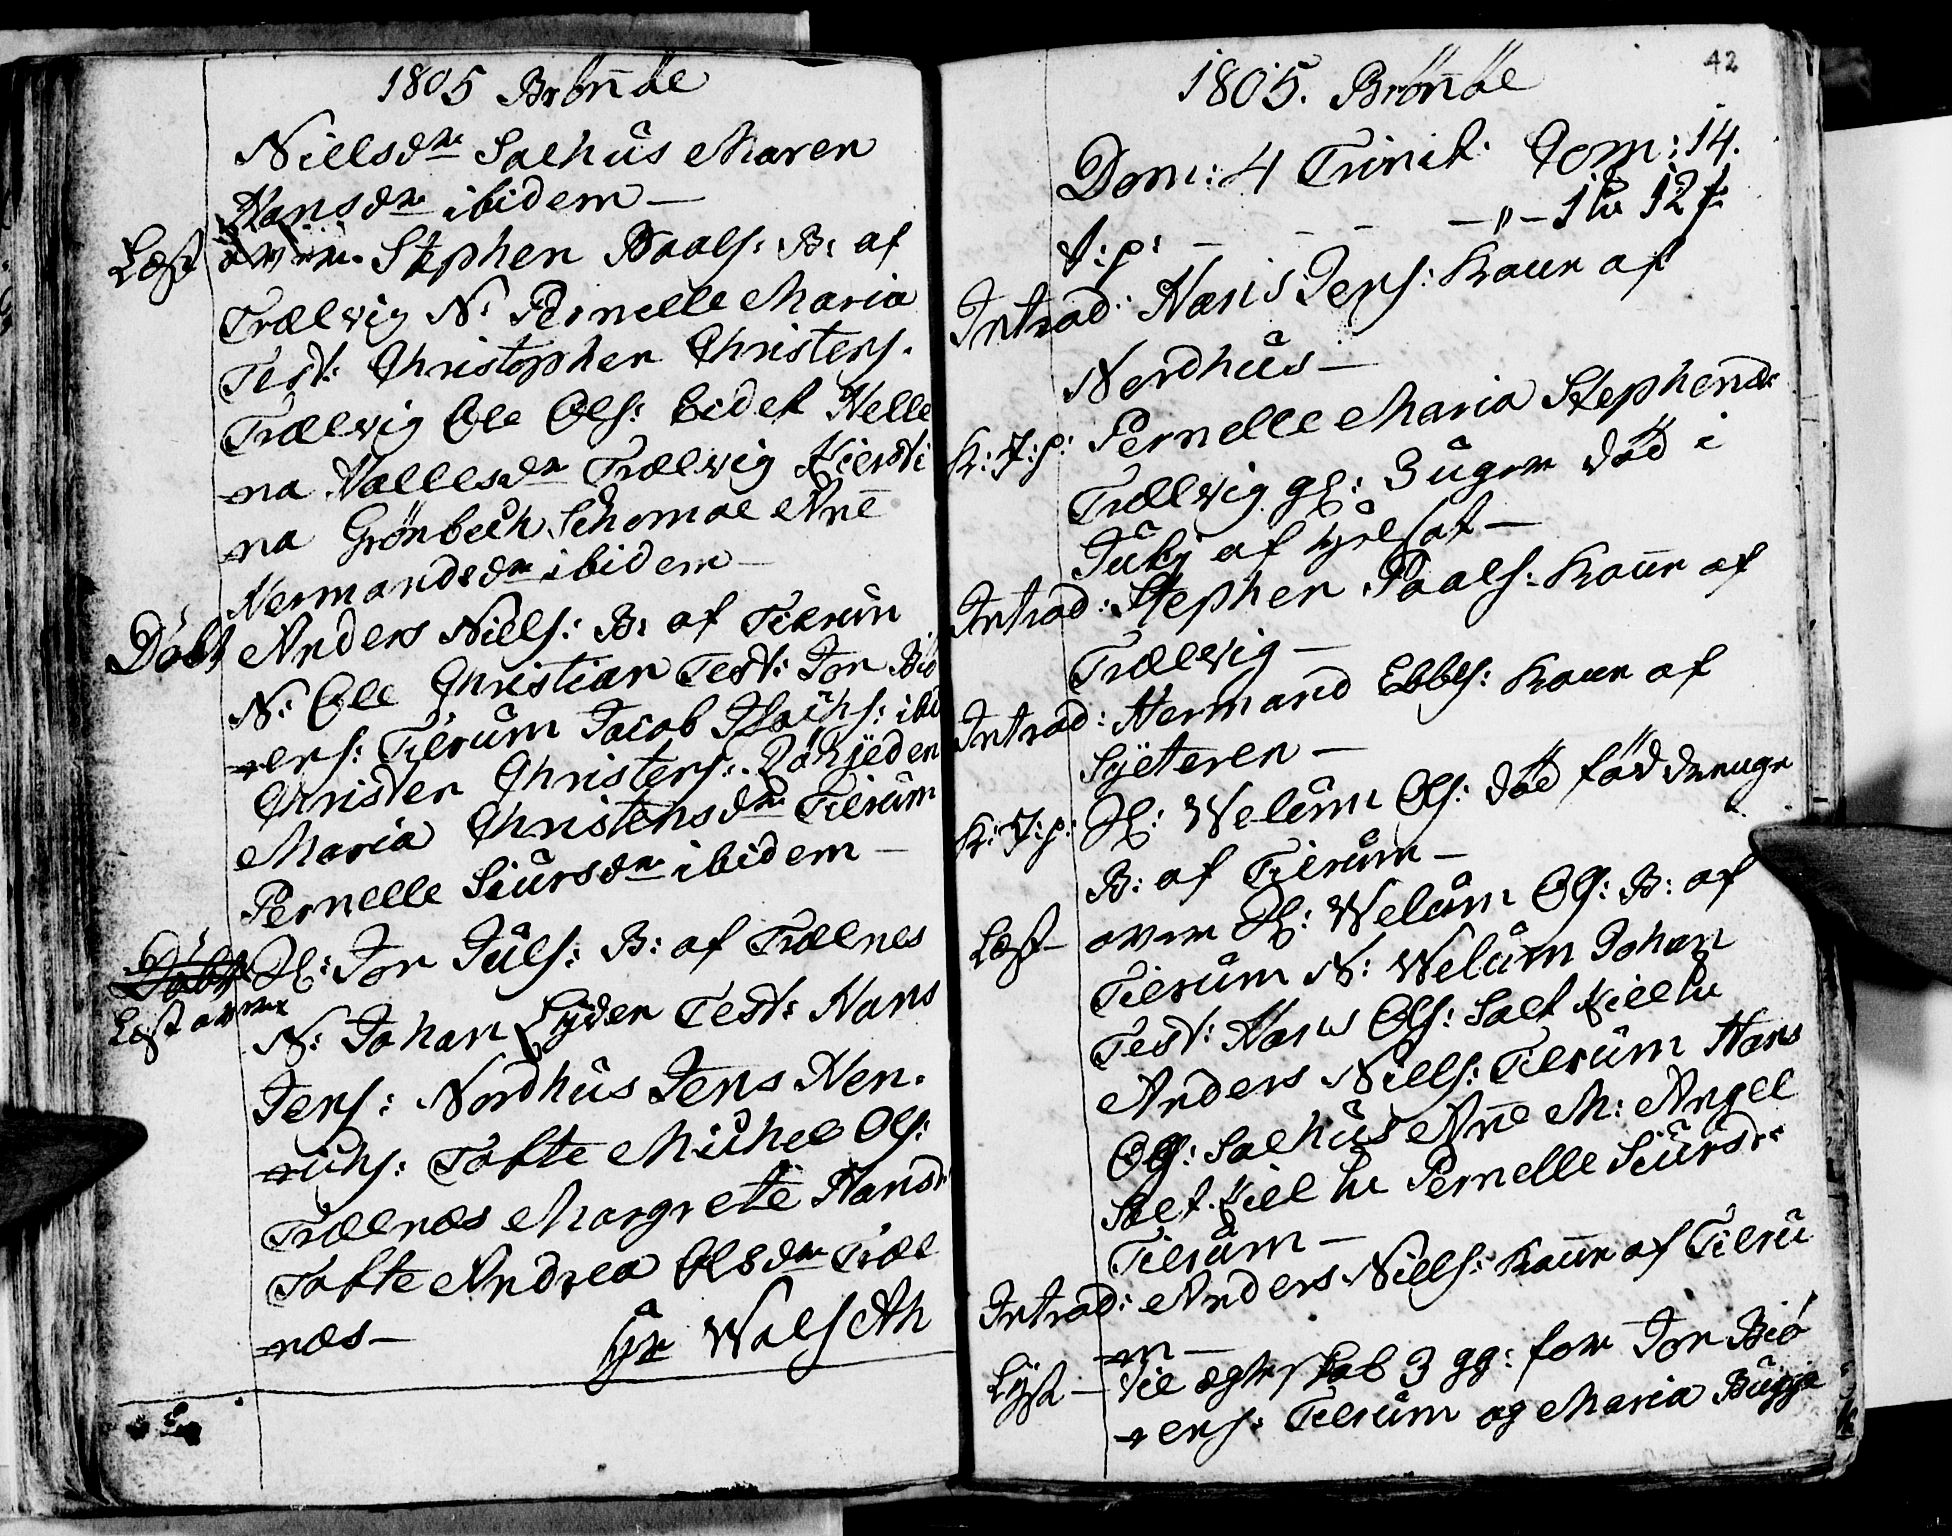 1805 Brønöe
Nielsdr Salhus Maren
Hansdr ibidem —
Læst over Stephen Paals: B: af
Trælvig N: Pernelle Maria
Test: Christopher Christens.
Trælvig Ole Ols: Eidet Helle
na Hallesdr Trælvig Kiersti
na Grønbech Schomoe Anne
Hermandsdr ibidem —
Døbt Anders Niels: B: af Tilrum
N: Ole Christian Test: Jon Biø
rens: Tilrum Jacob Isachs: ibid
Christen Christens:
Maria Christensdr Tilrum
Pernelle Siursdr ibidem —
Døbt
Læst over
Hl: Jon Juls: B: af Trælnes
N: Johan Lyder Test: Hans
Jens: Nordhus Jens Hen-
richs: Tofte Michel Ols:
Trælnæs Margrete Hansdr
Tofte Andrea Olsdr Træl
næs —
Hr Walseth
42
1805. Brønöe
Dom: 4 Trinit: Com: 14.
t: p: — — — „ — 1 12 f
Introd: Hans Jens: Kone af
Nordhus —
K: J: p: Pernelle Maria Stephensd:
Trælvig gl: 3 Uger død i
Introd: Stephen Paals: Kone af
Trælvig —
Introd: Hermand Ebbes: Kone af
Syeteren —
K: J: p: Hl: Welum Ols: død fød drenge
B: af Tilrum —
Læst — over Hl: Welum Ols: B: af
Tilrum N: Welum Johan
Test: Hans Ols: Salt Kielen
Anders Niels: Tilrum Hans
Ols: Salhus Anne M: Angel
Salt Kielen Pernelle Siursdr:
Tilrum —
Introd: Anders Niels: Kone af Tilru
m —
Lyst — til ægteskab 3 gg: for Jon Biø
rens: Tilrum og Maria Bugge